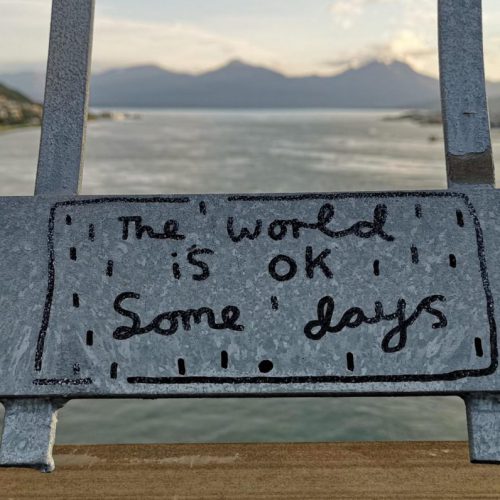 The world
is ok
Some days